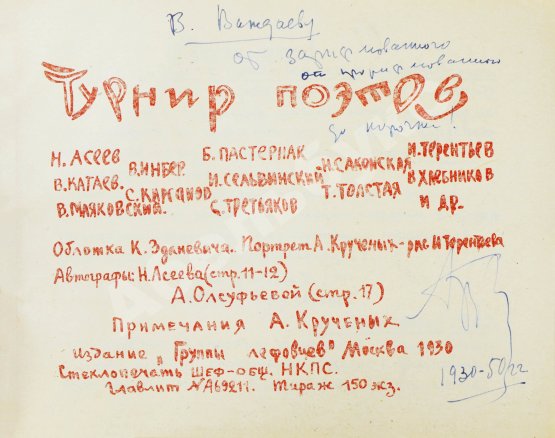 В. Важдаеву
от зарифмованного
от прорифмованного
Турнир поэтов
за карточки!
Н. АСЕЕВ В. ИНБЕР Б. ПАСТЕРНАК Н. САКОНСКАЯ И. ТЕРЕНТЬЕВ
В. КАТАЕВ С. КИРСАНОВ И. СЕЛЬВИНСКИЙ Т. ТОЛСТАЯ В. ХЛЕБНИКОВ
В. МАЯКОВСКИЙ С. ТРЕТЬЯКОВ И ДР.
Обложка К. Зданевича. Портрет А. Крученых - рис. И Терентьева
Автографы: Н. Асеева (стр. 11-12)
А. Олсуфьевой (стр. 17)
Примечания А. Крученых
Издание "Группы лефовцев" Москва 1930
Стеклопечать ШЕФ-ОБЩ. НКПС.
Главлит № А69211. Тираж 150 экз.
1930-50 гг